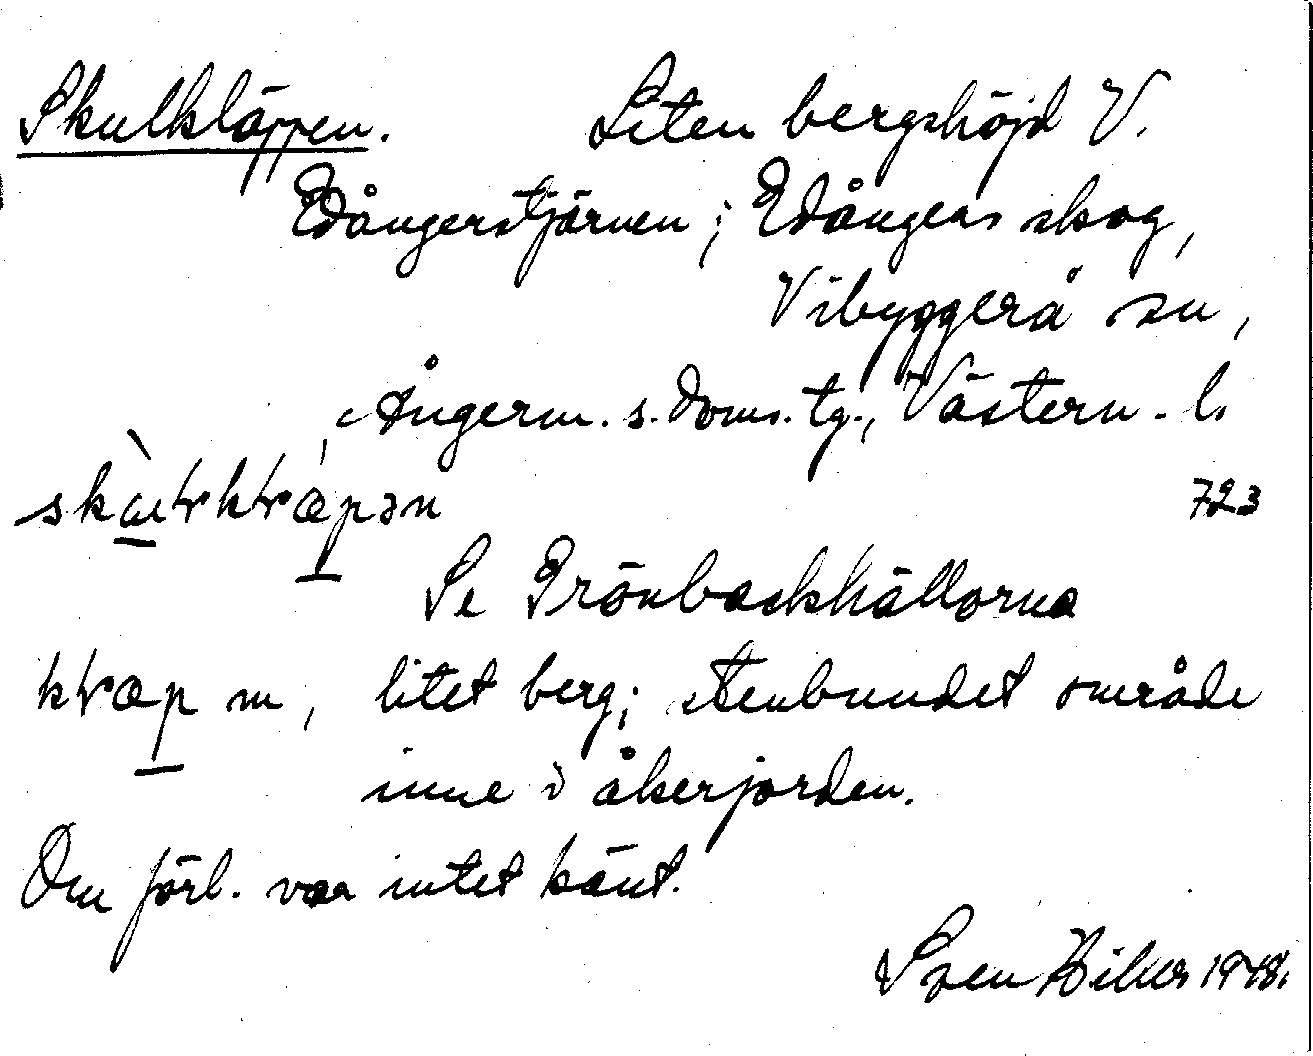 Skulkläppen. Liten bergshöjd V.
Edångerstjärnen; Edångers skog,
Vibyggerå sn,
Ångerm. s. doms. tg., Västern. l.
723
Se Grönbackhällorna
m, litet berg; stenbundet område
inne i åkerjorden.
Om förl. var intet känt.
Sven 1948.